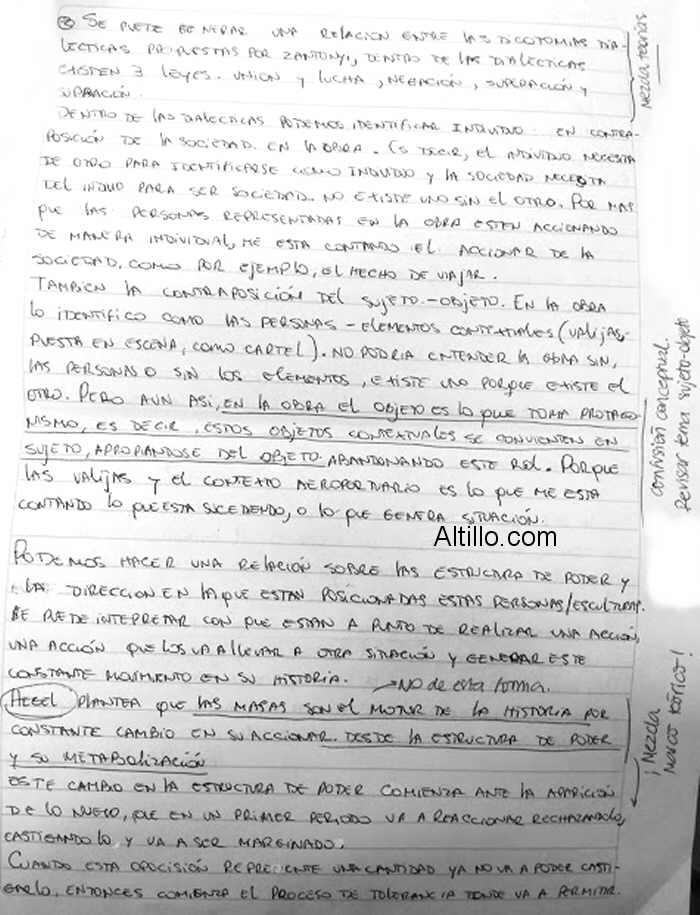 ② SE PUEDE GENERAR UNA RELACION ENTRE LAS DICOTOMIAS DIA-
LECTICAS PROPUESTAS POR ZANTONYI, DENTRO DE LAS DIALECTICAS
EXISTEN 3 LEYES. UNION Y LUCHA, NEGACIÓN, SUPERACIÓN Y
Mezcla teorías
DENTRO DE LAS DIALECTICAS PODEMOS IDENTIFICAR INDIVIDUO EN CONTRA-
POSICIÓN DE LA SOCIEDAD EN LA OBRA. ES DECIR, EL INDIVIDUO NECESITA
DE OTRO PARA IDENTIFICARSE COMO INDIVIDUO Y LA SOCIEDAD NECESITA
DEL INDIUO PARA SER SOCIEDAD. NO EXISTE UNO SIN EL OTRO. POR MAS
QUE LAS PERSONAS REPRESENTADAS EN LA OBRA ESTEN ACCIONANDO
DE MANERA INDIVIDUAL, ME ESTA CONTANDO EL ACCIONAR DE LA
SOCIEDAD. COMO POR EJEMPLO, EL HECHO DE VIAJAR.
TAMBIEN LA CONTRAPOSICIÓN DEL SUJETO-OBJETO. EN LA OBRA
LO IDENTIFICO COMO LAS PERSONAS - ELEMENTOS CONTEXTUALES (VALIJAS,
PUESTA EN ESCENA, COMO CARTEL). NO PODRIA ENTENDER LA OBRA SIN,
LAS PERSONAS O SIN LOS ELEMENTOS, EXISTE UNO PORQUE EXISTE EL
OTRO. PERO AUN ASI, EN LA OBRA EL OBJETO ES LO QUE TOMA PROTAGO-
NISMO, ES DECIR, ESTOS OBJETOS CONTEXTUALES SE CONVIENTEN EN
SUJETO, APROPIANDOSE DEL OBJETO. ABANDONANDO ESTE ROL. PORQUE
LAS VALIJAS Y EL CONTEXTO AEROPORTUARIO ES LO QUE ME ESTA
CONTANDO LO QUE ESTA SUCEDENDO, O LO QUE GENERA SITUACIÓN.
confusión conceptual.
Revisar tema sujeto-objeto
Altillo.com
PODEMOS HACER UNA RELACIÓN SOBRE LAS ESTRUCTURA DE PODER Y
LA DIRECCION EN LA QUE ESTAN POSICIONADAS ESTAS PERSONAS/ESCULTURAS.
SE PUEDE INTEPRETAR CON QUE ESTAN A PUNTO DE REALIZAR UNA ACCIÓN,
UNA ACCIÓN QUE LOS VA A LLEVAR A OTRA SITUACIÓN Y GENERAR ESTE
CONSTANTE MOVIMIENTO EN SU HISTORIA. → No de esta forma.
HEGEL PLANTEA QUE LAS MASAS SON EL MOTOR DE LA HISTORIA POR
CONSTANTE CAMBIO EN SU ACCIONAR. DESDE LA ESTRUCTURA DE PODER
Y SU METABOLIZACIÓN
¡Mezcla
marco teórico!
ESTE CAMBIO EN LA ESTRUCTURA DE PODER COMIENZA ANTE LA APARICIÓN
DE LO NUEVO, QUE EN UN PRIMER PERIODO VA A REACCIONAR RECHAZANDOLO,
CASTIGANDOLO Y VA A SER MARGINADO.
CUANDO ESTA OPOCISIÓN REPRESENTE UNA CANTIDAD YA NO VA A PODER CASTI-
GARLO, ENTONCES COMIENZA EL PROCESO DE TOLERANCIA DONDE VA A PERMITIR.